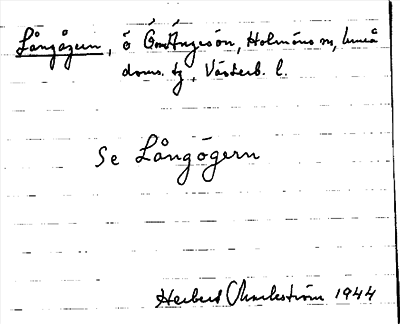 Långögern, ö Ö om Ängesön, Holmöns sn, Umeå
doms. tg, Västerb. l.
Se Långögern
Herbert Markström 1944